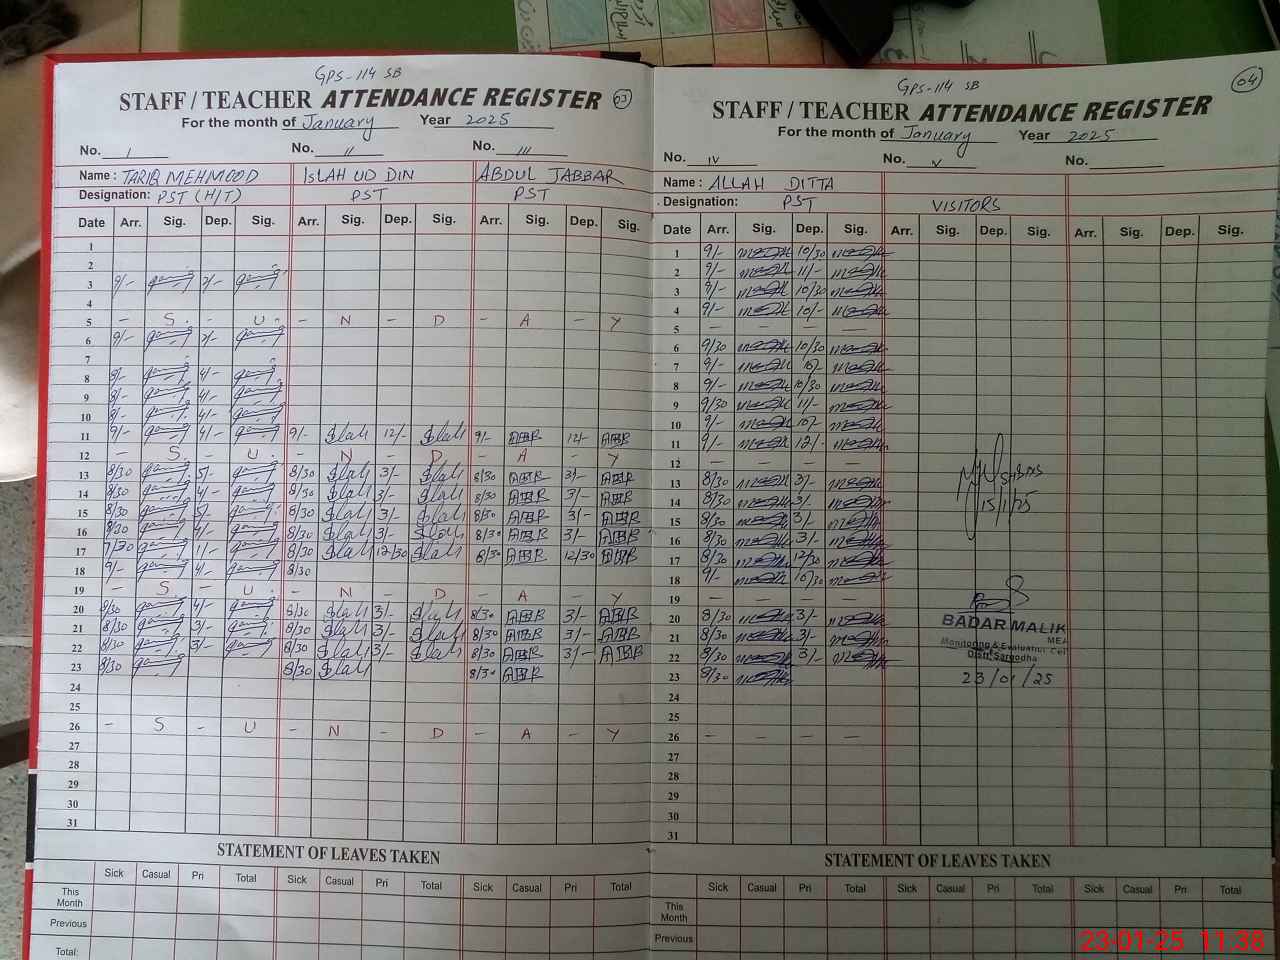 GPS-114 SB
STAFF / TEACHER ATTENDANCE REGISTER 03
For the month of January Year 2025
No. I No. II No. III
Name : TARIQ MEHMOOD ISLAH UD DIN ABDUL JABBAR
Designation: PST (H/T) PST PST
Date Arr. Sig. Dep. Sig. Arr. Sig. Dep. Sig. Arr. Sig. Dep. Sig.
1
2
3 9/- 2/-
4
5 - S - U - N - D - A - Y
6 9/- 2/-
7
8 8/- 4/-
9 8/- 4/-
10 8/- 4/-
11 9/- 4/- 9/- Islah 12/- Islah 9/- ABR 12/- ABR
12 - S - U - N - D - A - Y
13 8/30 5/- 8/30 Islah 3/- Islah 8/30 ABR 3/- ABR
14 8/30 4/- 8/30 Islah 3/- Islah 8/30 ABR 3/- ABR
15 8/30 5/- 8/30 Islah 3/- Islah 8/30 ABR 3/- ABR
16 8/30 4/- 8/30 Islah 3/- Islah 8/30 ABR 3/- ABR
17 7/30 1/- 8/30 Islah 12/30 Islah 8/30 ABR 12/30 ABR
18 9/- 4/- 8/30
19 - S - U - N - D - A - Y
20 8/30 4/- 8/30 Islah 3/- Islah 8/30 ABR 3/- ABR
21 8/30 3/- 8/30 Islah 3/- Islah 8/30 ABR 3/- ABR
22 8/30 3/- 8/30 Islah 3/- Islah 8/30 ABR 3/- ABR
23 8/30 8/30 Islah 8/30 ABR
24
25
26 - S - U - N - D - A - Y
27
28
29
30
31
STATEMENT OF LEAVES TAKEN
Sick Casual Pri Total Sick Casual Pri Total Sick Casual Pri Total
This Month
Previous
Total:
GPS-114 SB
04
STAFF / TEACHER ATTENDANCE REGISTER
For the month of January Year 2025
No. IV No. V No.
Name : ALLAH DITTA
Designation: PST VISITORS
Date Arr. Sig. Dep. Sig. Arr. Sig. Dep. Sig. Arr. Sig. Dep. Sig.
1 9/- 10/30
2 9/- 11/-
3 9/- 10/30
4 9/- 10/-
5 - - - -
6 9/30 10/30
7 9/- 10/-
8 9/- 10/30
9 9/30 11/-
10 9/- 10/-
11 9/- 12/-
12 - - - -
13 8/30 3/-
14 8/30 3/-
15 8/30 3/-
16 8/30 3/-
17 8/30 12/30
18 9/- 10/30
19 - - - -
20 8/30 3/-
21 8/30 3/-
22 8/30 3/-
23 8/30
24
25
26 - - - -
27
28
29
30
31
15/1/25
BADAR MALIK
MEA
Monitoring & Evaluation Cell
Distt: Sargodha
23/01/25
STATEMENT OF LEAVES TAKEN
Sick Casual Pri Total Sick Casual Pri Total Sick Casual Pri Total
This Month
Previous
23-01-25 11:38